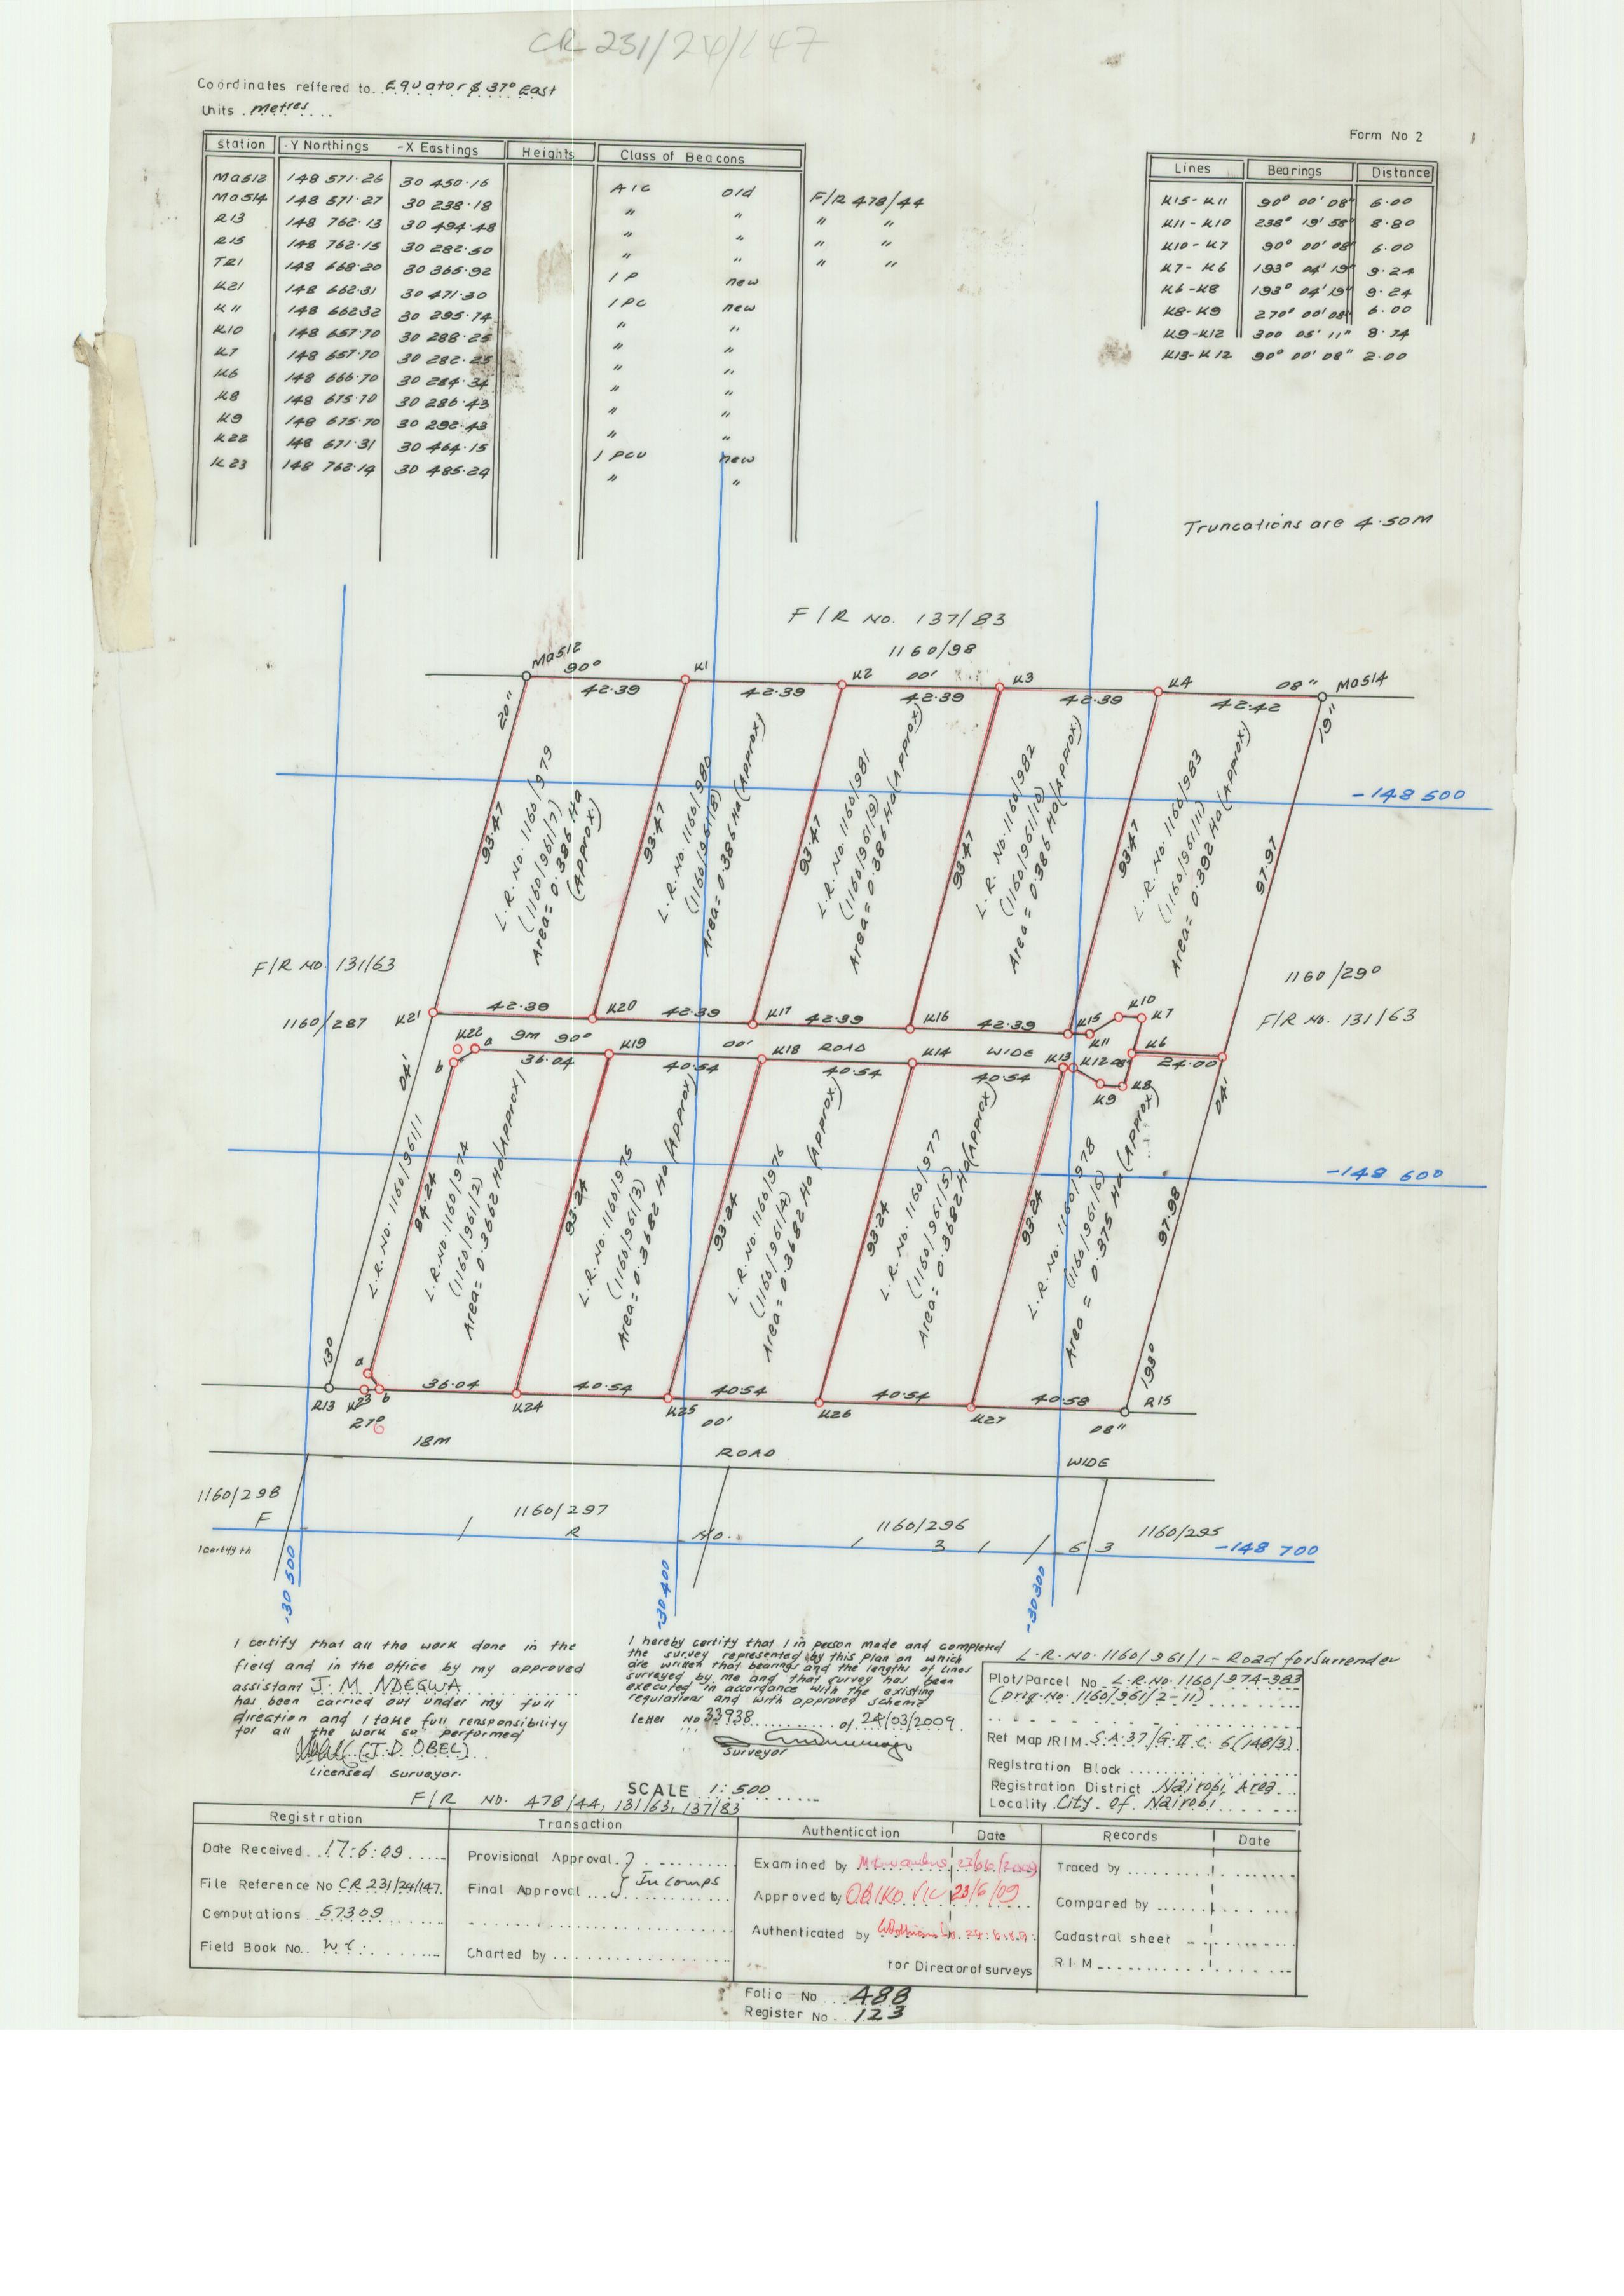 CR 231/24/147
Coordinates reffered to. Equator & 37° East
Units. metres
Form No 2
station -Y Northings -X Eastings Heights Class of Beacons
Ma512 148 571.26 30 450.16 A I C old F/R 478/44
Ma514 148 571.27 30 238.18 " " " "
R13 148 762.13 30 494.48 " " " "
R15 148 762.15 30 282.50 " " " "
TR1 148 668.20 30 365.92 I P new
K21 148 662.31 30 471.30 I PC new
K11 148 662.32 30 295.74 " "
K10 148 657.70 30 288.25 " "
K7 148 657.70 30 282.25 " "
K6 148 666.70 30 284.34 " "
K8 148 675.70 30 286.43 " "
K9 148 675.70 30 292.43 " "
K22 148 671.31 30 464.15 I PCU new
K23 148 762.14 30 485.29 " "
Lines Bearings Distance
K15-K11 90° 00' 08" 6.00
K11-K10 238° 19' 58" 8.80
K10-K7 90° 00' 08" 6.00
K7-K6 193° 04' 19" 9.24
K6-K8 193° 04' 19" 9.24
K8-K9 270° 00' 08" 6.00
K9-K12 300 05' 11" 8.74
K13-K12 90° 00' 08" 2.00
Truncations are 4.50m
F/R No. 137/83
1160/98
Ma512 90° K1 K2 00' K3 K4 08" Ma514
42.39 42.39 42.39 42.39 42.42
20" 19"
93.47 93.47 93.47 93.47 93.47 97.97
L.R. No. 1160/979
(1160/961/7)
Area = 0.386 Ha
(Approx)
L.R. No. 1160/980
(1160/961/8)
Area = 0.386 Ha (Approx)
L.R. No. 1160/981
(1160/961/9)
Area = 0.386 Ha (Approx)
L.R. No. 1160/982
(1160/961/10)
Area = 0.386 Ha (Approx)
L.R. No. 1160/983
(1160/961/11)
Area = 0.392 Ha (Approx)
-148 500
F/R No. 131/63
1160/287
1160/290
F/R No. 131/63
K21 42.39 K20 42.39 K17 42.39 K16 42.39 K15 K11 K10 K7
K22 a 9m 90° K19 00' K18 ROAD K14 WIDE K13 K12 08" K6
b 36.04 40.54 40.54 40.54 K9 K8 24.00
04' 04'
-148 600
L.R. No. 1160/961/1
94.24 93.24 93.24 93.24 93.24 97.98
L.R. No. 1160/974
(1160/961/2)
Area = 0.3662 Ha (Approx)
L.R. No. 1160/975
(1160/961/3)
Area = 0.3682 Ha (Approx)
L.R. No. 1160/976
(1160/961/4)
Area = 0.3682 Ha (Approx)
L.R. No. 1160/977
(1160/961/5)
Area = 0.3682 Ha (Approx)
L.R. No. 1160/978
(1160/961/6)
Area = 0.375 Ha (Approx)
13° a 193°
36.04 40.54 40.54 40.54 40.58
R13 K23 b K24 K25 K26 K27 R15
270 00' 08"
18m ROAD WIDE
1160/298 1160/297 1160/296 1160/295
F / R No. / 3 / / 63
-148 700
I certify th
-30 500 -30 400 -30 300
I certify that all the work done in the
field and in the office by my approved
assistant J. M. NDEGWA
has been carried out under my full
direction and I take full rensponsibility
for all the work so performed
(J.D. OBEL)
Licensed Surveyor.
I hereby certify that I in person made and completed
the survey represented by this plan on which
are written that bearings and the lengths of lines
surveyed by me and that survey has been
executed in accordance with the existing
regulations and with approved scheme
letter No 33938 of 24/03/2009
Surveyor
L.R. No. 1160/961/1 - Road for Surrender
Plot/Parcel No L.R. No. 1160/974-983
(Orig. No. 1160/961/2-11)
Ref Map/RIM S.A.37/G.II.C. 6 (148/3)
Registration Block
Registration District Nairobi Area
Locality City of Nairobi
SCALE 1:500
F/R No. 478/44, 131/63, 137/83
Registration Transaction Authentication Date Records Date
Date Received 17:6:09
File Reference No CR 231/24/147
Computations 57309
Field Book No.
Provisional Approval
Final Approval In Comps
Charted by
Examined by
Approved by OBIKO VIC 23/6/09
Authenticated by
for Director of surveys
Traced by
Compared by
Cadastral sheet
R.I.M
Folio No 488
Register No 123